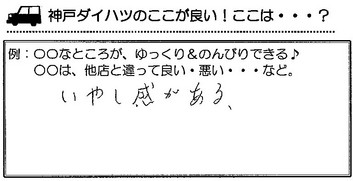 神戸ダイハツのここが良い！ここは・・・？
例：〇〇なところが、ゆっくり＆のんびりできる♪
〇〇は、他店と違って良い・悪い・・・など。
いやし感がある、